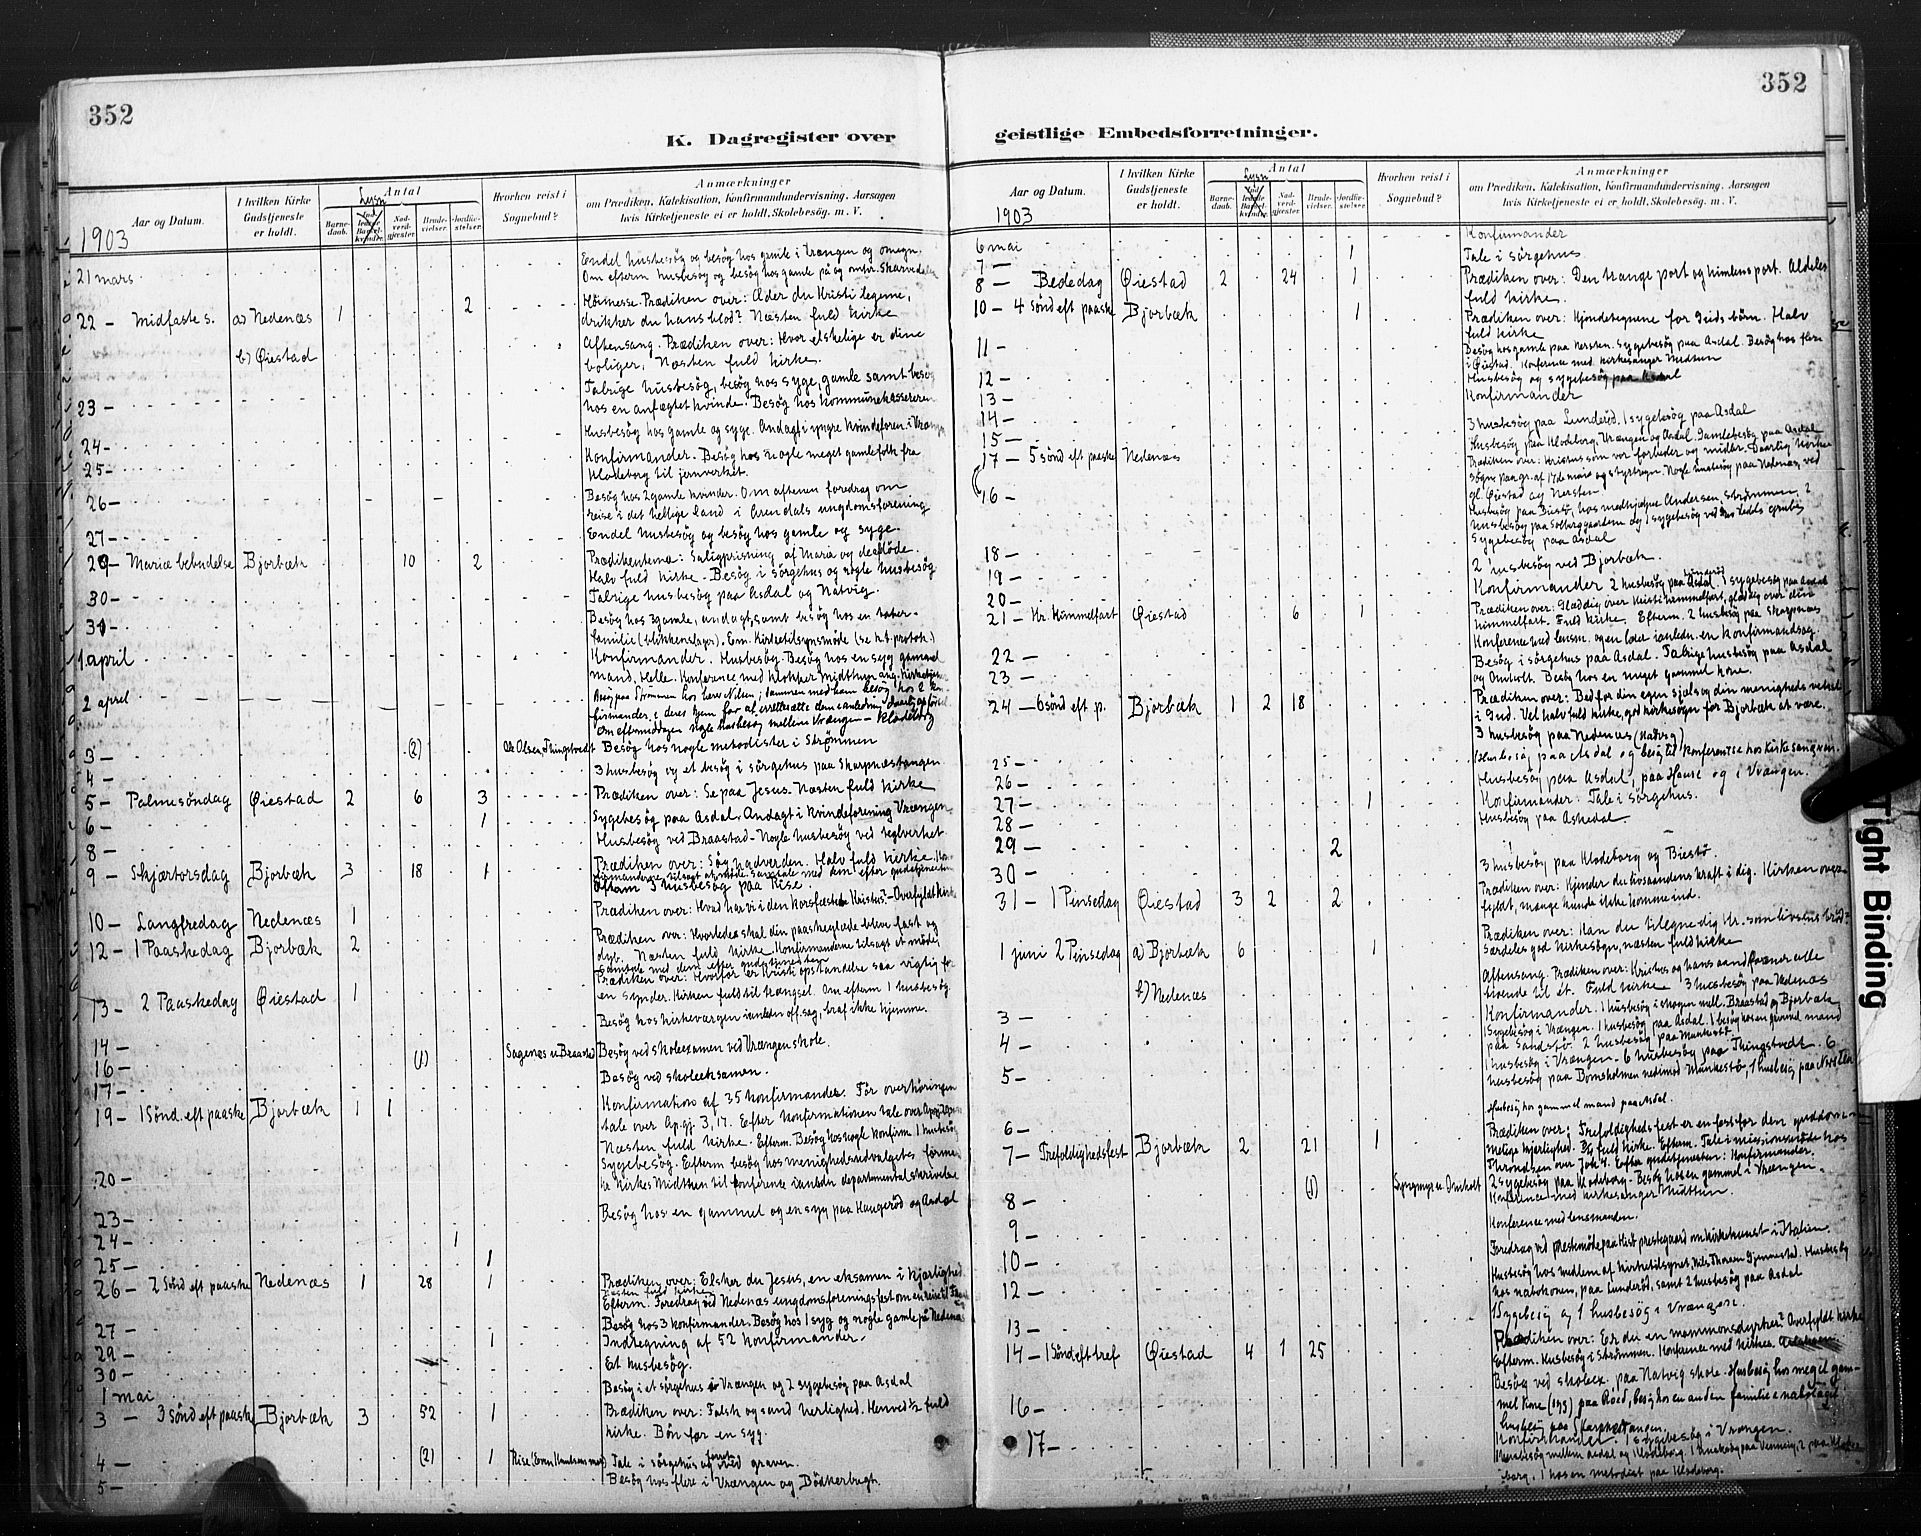 352
K. Dagregister over
Aar og Datum.
I hvilken Kirke Gudstjeneste er holdt.
Antal
Lysn
Barnedaab.
Indledede Barselkvinder.
Nadverdgjester.
Brudevielser.
Jordfæstelser.
Hvorhen reist i Sognebud?
Anmærkninger
om Prædiken, Katekisation, Konfirmandundervisning, Aarsagen
hvis Kirketjeneste ei er holdt, Skolebesøg. m. V.
1903
21 mars Endel husbesøg og besøg hos gamle i Vrængen og omegn.
Om efterm husbesøg og besøg hos gamle på og omkr.
22 - Midfastes. a) Nedenæs 1 2 Høimesse. Prædiken over: Æder du Kristi legeme,
drikker du hans blod? Næsten fuld kirke
b) Øiestad Aftensang. Prædiken over: Hvor elskelige er dine
boliger. Næsten fuld kirke.
23 - Talrige husbesøg, besøg hos syge, gamle samt besøg
hos en anfægtet kvinde. Besøg hos kommunekassereren
24 - Husbesøg hos gamle og syge. Andagt i yngre kvindeforen. i
25 - Konfirmander. Besøg hos nogle meget gamle folk fra
Klodeborg til jernverket.
26 - Besøg hos 2 gamle kvinder. Om aftenen foredrag om
reise i det hellige land i Arendals ungdomsforening
27 - Endel husbesøg og besøg hos gamle og syge.
29 - Mariæ bebudelse Bjorbæk 10 2 Prædikentema: Saligprisning af Maria og de døde.
Halv fuld kirke - Besøg i sørgehus og nogle husbesøg
30 - Talrige husbesøg paa Asdal og Natvig.
31 - Besøg hos 3 gamle, andagt, samt besøg hos en tater-
familie (blikkenslager). Em. Kirketilsynsmøde (se h.b. protok.)
1 april Konfirmander. Husbesøg. Besøg hos en syg gammel
mand, Helle. Konference med klokker Midthun ang.
2 april
Om eftermiddagen nogle husbesøg mellem Vrængen - Klodeborg
3 - (2) Ole Olsen, Thingstvedt Besøg hos nogle metodister i Strømmen
4 - 3 husbesøg og et besøg i sørgehus paa Skarpnæstangen
5 - Palmesøndag Øiestad 2 6 3 Prædiken over: Se paa Jesus. Næsten fuld kirke
6 - 1 Sygebesøg paa Asdal. Andagt i kvindeforening Vrængen
8 - Husbesøg ved Braastad - Nogle husbesøg ved teglverket
9 - Skjærtorsdag Bjorbæk 3 18 1 Prædiken over: Søg nadverden. Halv fuld kirke.
Efterm 3 husbesøg paa Rise.
10 - Langfredag Nedenæs 1 Prædiken over: Hvad har vi i den korsfæstede Kristus? - Overfyldt kirke
12 - 1 Paaskedag Bjorbæk 2 Prædiken over: Hvorledes skal din paaskeglæde blive fast og
dyb. Næsten fuld kirke. Konfirmanderne tilsagt at møde,
samtale med dem efter gudstjenesten
13 - 2 Paaskedag Øiestad 1 Prædiken over: Hvorfor er Kristi opstandelse saa vigtig for
en synder. Kirken fuld til trængsel. Om efterm 1 husbesøg.
14 - Besøg hos kirkevergen i anledn off. sag, traf ikke hjemme.
16 - (1) Sagenæs v. Braastad Besøg ved skoleexamen ved Vrængen skole.
17 - Besøg ved skoleeksamen.
19 - 1 Sønd. eft paaske Bjorbæk 1 1 Konfirmation af 35 konfirmander. Før overhøringen
tale over Ap.gj. 3,17. Efter konfirmationen tale over
Næsten fuld kirke. Efterm. Besøg hos nogle konfirm. 1 husbesøg
20 - Sygebesøg. Efterm besøg hos menighedsudvalgets
Midthun til konference i anledn departementalskrivelse
23 - Besøg hos en gammel og en syg paa Haugerød og Asdal
24 - 1
25 - 1
26 - 2 Sønd eft paaske Nedenæs 1 28 1 Prædiken over: Elsker du Jesus, en eksamen i kjærlighed
Næsten fuld kirke
Efterm. Foredrag ved Nedenæs ungdomsforenings fest om en reise til
27 - Besøg hos 3 konfirmander. Besøg hos 1 syg og nogle gamle på Nedenæs
29 - 1 Indtegning af 52 konfirmander.
30 - Et husbesøg.
1 mai Besøg i et sørgehus i Vrængen og 2 sygebesøg paa Asdal
3 - 3 Sønd eft paaske Bjorbæk 3 52 1 Prædiken over: Falsk og sand herlighed. Henved ½ fuld
kirke. Bøn for en syg.
4 - (2) 1 Tale i sørgehus og ved graven.
5 - Besøg hos flere i Vrængen og Dökkerbugt.
352
geistlige Embedsforretninger.
Aar og Datum.
I hvilken Kirke Gudstjeneste er holdt.
Antal
Lysn
Barnedaab.
Indledede Barselkvinder.
Nadverdgjester.
Brudevielser.
Jordfæstelser.
Hvorhen reist i Sognebud?
Anmærkninger
om Prædiken, Katekisation, Konfirmandundervisning, Aarsagen
hvis Kirketjeneste ei er holdt, Skolebesøg. m. V.
1903
6 mai Konfirmander
7 - 1 Tale i sørgehus
8 - Bededag Øiestad 2 24 1 Prædiken over: Den trange port og himlens port. Aldeles
fuld kirke.
10 - 4 Sønd eft paaske Bjorbæk 1 Prædiken over: Kjendetegnene for Guds børn. Halv
fuld kirke
11 - Besøg hos gamle paa Nersten. Sygebesøg paa Asdal. Besøg hos flere
i Øiestad. Konference med kirkesanger Midthun
12 - Husbesøg og sygebesøg paa Asdal
13 - Konfirmander
14 - 3 husbesøg paa Lunderød. 1 sygebesøg paa Asdal
15 - Husbesøg paa Klodeborg, Vrængen og Asdal. Gamlebesøg paa Asdal
17 - 5 sønd eft paaske Nedenæs Prædiken over: Kristus som vor forbeder og midler. Daarlig kirke
søgn. paa gr. af 17de mai og styrtregn. Nogle husbesøg paa Nedenæs, ved
gl. Øiestad og Nersten
16 - Husbesøg paa Biestø, hos medhjælper Andersen, Strømmen. 2
husbesøg paa Solberggaardene og 1 sygebesøg ved
18 - Sygebesøg paa Asdal
19 - 2 husbesøg ved Bjorbæk.
20 - Konfirmander 2 husbesøg paa Lunderød 1 sygebesøg paa Asdal
21 - Kr. Himmelfart Øiestad 6 1 Prædiken over: Glæd dig over Kristi himmelfart, glæd dig over din
himmelfart. Fuld kirke. Efterm. 2 husbesøg paa Skarpnæs
22 - Konference med lensm. og en lærer i anledn. en konfirmandsag.
23 - Besøg i sørgehus paa Asdal. Talrige husbesøg paa Asdal
og Omholt. Besøg hos en meget gammel kone.
24 - 6 sønd eft p. Bjorbæk 1 2 18 Prædiken over: Bed for din egen sjæls og din menigheds vekst
i Gud. Vel halv fuld kirke, god kirkesøgn for Bjorbæk at være.
3 husbesøg paa Nedenæs (Natvig)
25 - Husbesøg paa Asdal og besøg til konferentse hos kirkesangeren.
26 - Husbesøg paa Asdal, paa Hause og i Vrængen.
27 - 1 Konfirmander. Tale i sørgehus.
28 - Husbesøg paa Askedal
29 - 2
30 - 3 husbesøg paa Klodeborg og Biestø.
31 - 1 Pinsedag Øiestad 3 2 2 Prædiken over: Kjender du livsaandens kraft i dig. Kirken over-
fyldt, mange kunde ikke komme ind.
1 juni 2 Pinsedag a) Bjorbæk 6 1 Prædiken over: Kan du tilegne dig Kr. som livsens brød?
Særdeles god kirkesøgn, næsten fuld kirke
b) Nedenæs Aftensang. Prædiken over: Kristus og hans aand kræver alle
troende til ét. Fuld kirke 3 husbesøg paa Nedenæs
3 - Konfirmander. 1 husbesøg i skogen mell. Braastad og Bjorbæk
4 - 1 Sygebesøg i Vrængen. 1 husbesøg paa Asdal. 1 besøg hos en gammel mand
paa Sandstø. 2 husbesøg paa Munkestø
5 - 1 husbesøg i Vrængen - 6 husbesøg paa Thingstvedt. 6
husbesøg paa Bomsholmen nedimod Munkestø, 1 husbesøg paa Nersten
6 - Husbesøg hos gammel mand paa Asdal.
7 - Trefoldighedsfest Bjorbæk 2 21 1 Prædiken over: Trefoldighedsfest er en fest for den guddom-
melige kjærlighed. Fuld kirke. Efterm. Tale i missionsmøde hos
Throndsen over Joh 4. Efter gudstjenesten: Konfirmander.
8 - (1) 2 sygebesøg paa Klodeborg - Besøg hos en gammel i Vrængen.
Konference med kirkesanger Midthun
9 - Konference med lensmanden.
10 - Foredrag ved prestemøde paa Hist prestegaard om kirkekunst i Italien.
12 - Husbesøg hos medlem af kirketilsynet, Nils Thorsen Gjennestad. Husbesøg
hos nabokonen, paa Lunderød, samt 2 husbesøg paa Asdal
13 - 1 Sygebesøg og 1 husbesøg i Vrængen.
14 - 1 Sønd eft tref Øiestad 4 1 25 Prædiken over: Er du en mammonsdyrker? Overfyldt kirke
Efterm. Husbesøg i Strømmen. Konference med
16 - Besøg ved skoleex. paa Natvig skole. Husbesøg hos meget gam-
mel kone (93) paa Røed, besøg hos en anden familie i nabolaget,
husbesøg paa Skarpnestangen.
17 - Konfirmander. 1 sygebesøg i Vrængen.
Husbesøg mellem Asdal og Klodeborg, 1 husbesøg paa 2 paa Klode-
borg, 1 hos en metodist paa Klodeborg.
Tight Binding